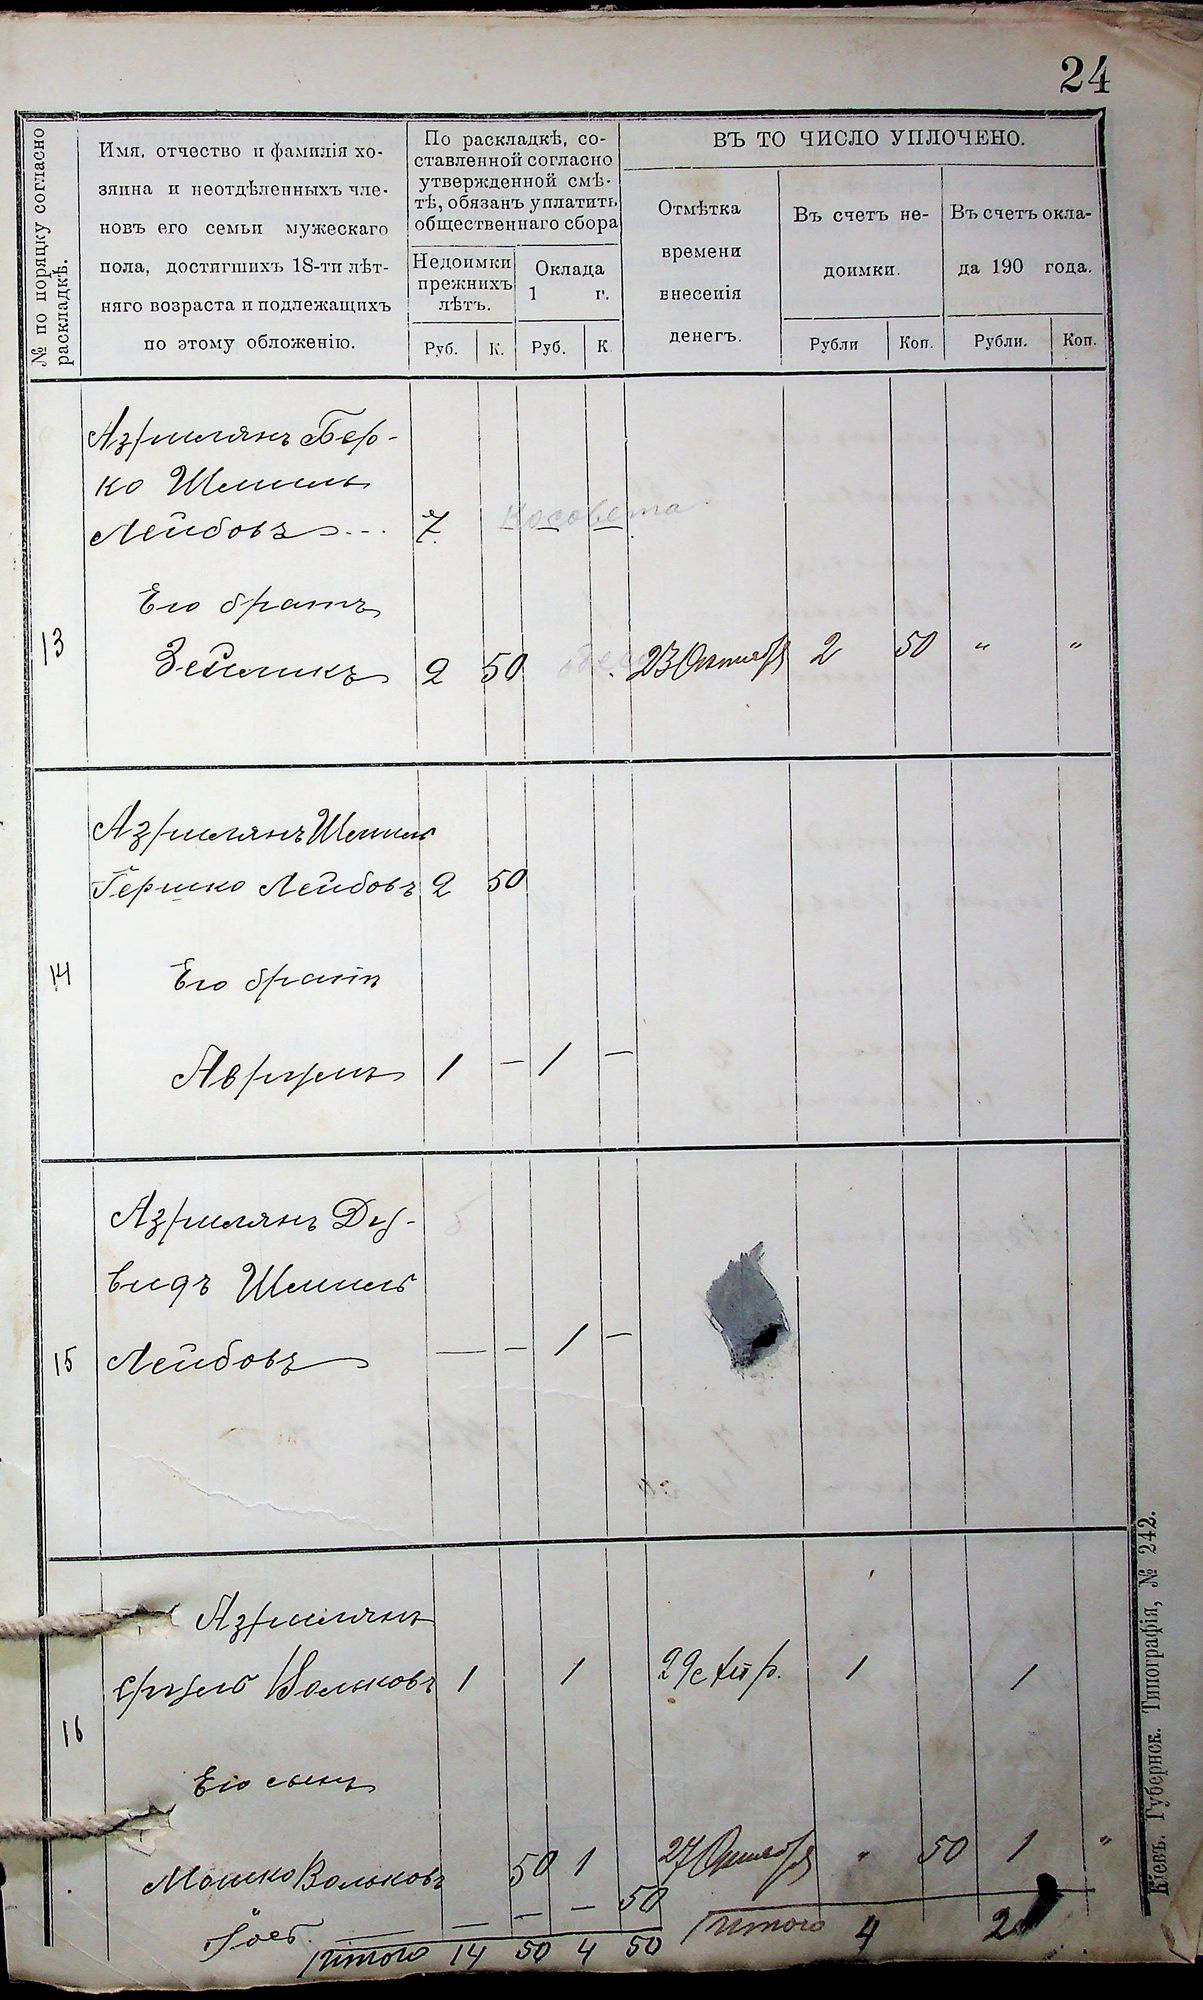 24
№ по порядку согласно раскладкѣ.
Имя, отчество и фамилія хо-
зяина и неотдѣленныхъ чле-
новъ его семьи мужескаго
пола, достигшихъ 18-ти лѣт-
няго возраста и подлежащихъ
по этому обложенію.
По раскладкѣ, со-
ставленной согласно
утвержденной смѣ-
тѣ, обязанъ уплатить
общественнаго сбора
Недоимки прежнихъ лѣтъ.
Оклада 1 г.
Руб. К. Руб. К
ВЪ ТО ЧИСЛО УПЛОЧЕНО.
Отмѣтка
времени
внесенія
денегъ.
Въ счетъ не-
доимки.
Рубли Коп.
Въ счетъ окла-
да 190 года.
Рубли. Коп.
Азрилянъ Бер-
ко Шмиль
Лейбовъ 7 — —
Его братъ
13 Зейликъ 2 50 23 Октября 2 50 " "
Азрилянъ Шмиль
Гершко Лейбовъ 2 50
14 Его братъ
Аврумъ 1 — 1 —
Азрилянъ Ду-
видъ Шмиль
15 Лейбовъ — — 1 —
Азрилянъ
Сруль Вольковъ 1 1 29 1 1
16
Его сынъ
Мошко Вольковъ 50 1 27 Октября " 50 1 "
— — — 50
Итого 14 50 4 50 Итого 4 2
Кіевъ. Губернск. Типографія, № 242.